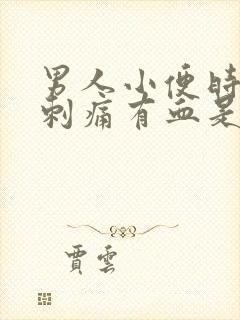 男人小便时
刺痛有血是
賈雲